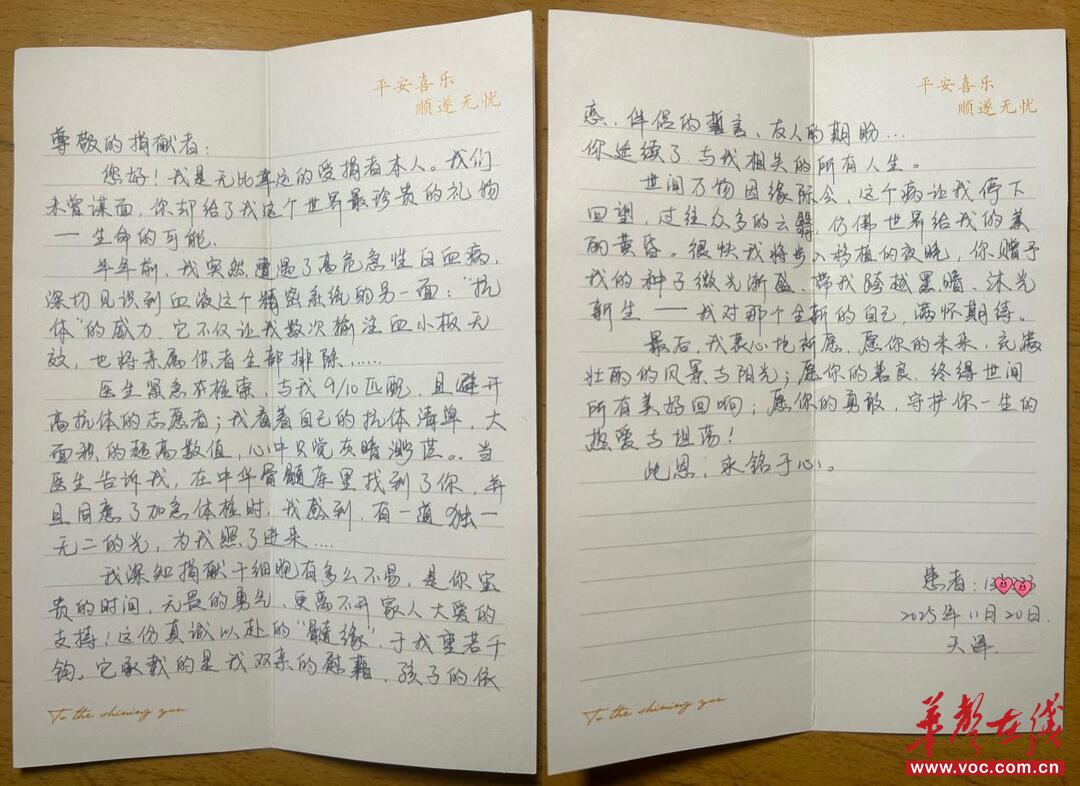 平安喜乐
顺遂无忧
尊敬的捐献者：
您好！我是无比幸运的受捐者本人。我们
未曾谋面，你却给了我这个世界最珍贵的礼物
—生命的可能.
半年前，我突然遭遇了高危急性白血病，
深切见识到血液这个精密系统的另一面："抗
体"的威力.它不仅让我数次输注血小板无
效，也将亲属供者全部排除……
医生紧急检索，与我9/10匹配，且避开
高抗体的志愿者；我看着自己的抗体清单，大
面积的超高数值，心中只觉灰暗渺茫。当
医生告诉我，在中华骨髓库里找到了你，并
且同意了加急体检时，我感到，有一道独一
无二的光，为我照了进来....
我深知捐献干细胞有多么不易，是你宝
贵的时间，无畏的勇气，更离不开家人大爱的
支持！这份真诚以赴的"髓缘"，于我重若千
钧。它承载的是我双亲的慰藉，孩子的依
To the shining you
平安喜乐
顺遂无忧
恋，伴侣的誓言、友人的期盼...
你延续了与我相关的所有人生。
世间万物因缘际会，这个病让我停下
回望，过往众多的云翳，仿佛世界给我的美
丽黄昏。很快我将步入移植的夜晚，你赠予
我的种子微光渐盈、带我跨越黑暗、沐光
新生——我对那个全新的自己，满怀期待。
最后，我衷心地祈愿，愿你的未来，充满
壮丽的风景与阳光；愿你的善良，终得世间
所有美好回响；愿你的勇敢，守护你一生的
热爱与坦荡！
此恩，永铭于心。
患者：
2025年11月20日.
天津.
To the shining you
华声在线
www.voc.com.cn